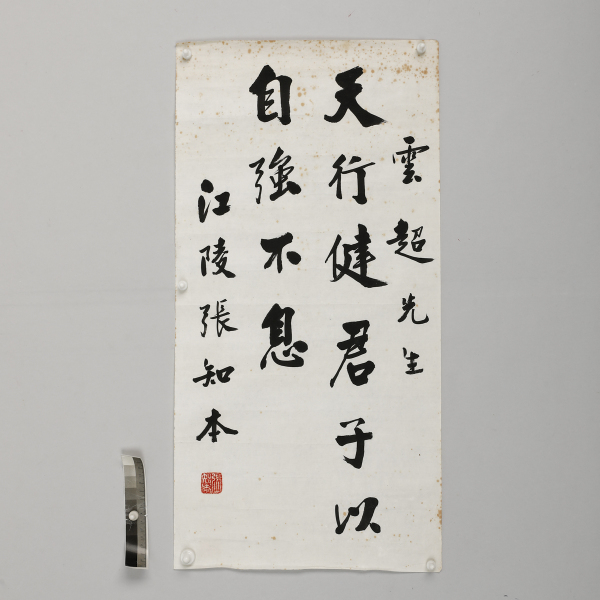 雲超先生
天行健君子以
自強不息
江陵張知本